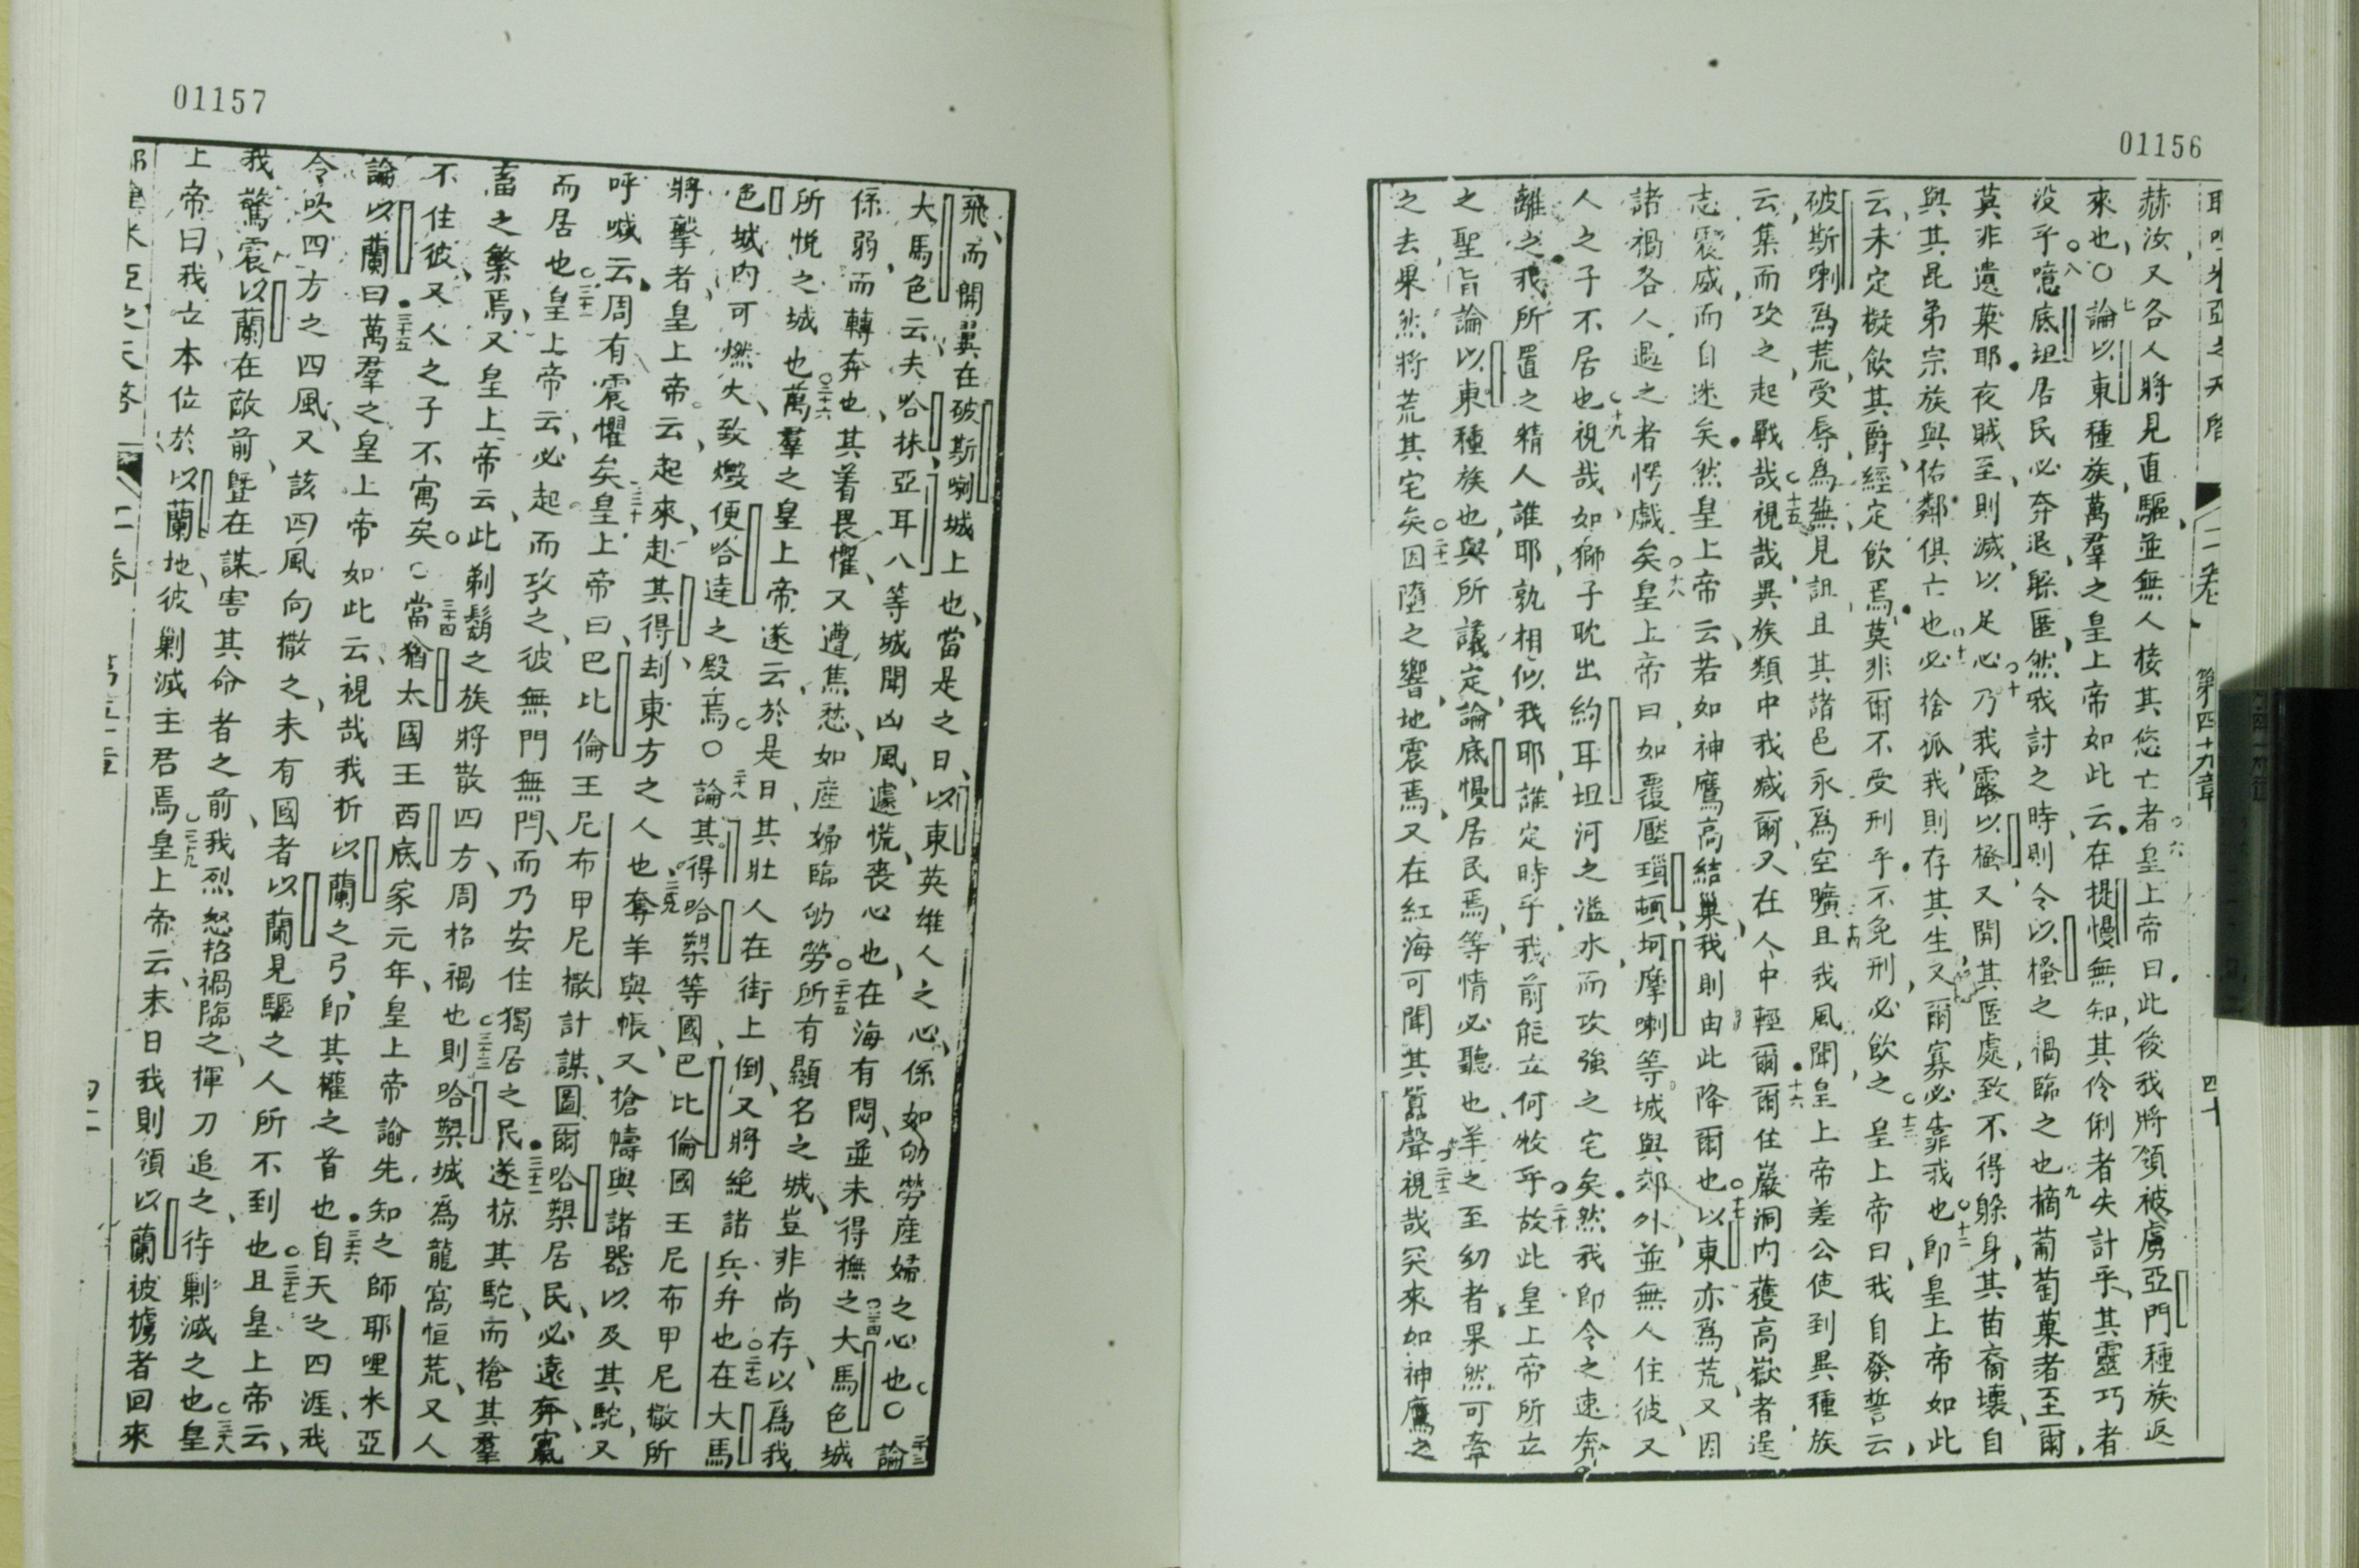 01156
赫汝又各人將見直驅並無人接其您亡者六皇上帝曰此後我將領被虜亞門種族返
來也〇七論以東種族萬羣之皇上帝如此云在提慢無知其伶俐者失計乎其靈巧者
没乎八噫底坦居民必奔退躱匿然我討之時則令以橇之禍臨之也九摘葡萄菓者至爾
莫非遺菓耶夜賊至則滅以足心十乃我露以橇又開其匿處致不得躱身其苗裔壞自
與其昆弟宗族與佑鄰俱亡也十一必捨孤我則存其生又爾寡必靠我也十二即皇上帝如此
云未定擬飲其爵經定飲焉莫非爾不受刑乎不免刑必飲之十三皇上帝曰我自發誓云
破斯喇爲荒受辱爲蕪見詛且其諸邑永爲空曠且十四我風聞皇上帝差公使到異種族
云集而攻之起戰哉十五視哉異族類中我減爾又在人中輕爾十六爾住巖洞内獲高嶽者逞
志震威而自迷矣然皇上帝云若如神鷹高結巢我則由此降爾也十七以東亦爲荒又因
諸禍各人過之者愕戲矣十八皇上帝曰如覆壓瑣頓坷摩喇等城與郊外並無人住彼又
人之子不居也十九視哉如獅子耽出約耳坦河之溢水而攻強之宅矣然我即令之速奔
離之我所置之精人誰耶孰相似我耶誰定時乎我前能立何牧乎二十故此皇上帝所立
之聖旨論以東種族也與所議定論底慢居民焉等情必聽也羊之至幼者果然可牽
之去果然將荒其宅矣二十一因墮之響地震焉又在紅海可聞其嚣聲二十二視哉突來如神鷹之
第四十九章
四十
01157
飛而開翼在破斯喇城上也當是之日以東英雄人之心係如劬勞產婦之心也〇二十三論
大馬色云夫哈抹亞耳八等城聞凶風遽慌喪心也在海有悶並未得撫之二十四大馬色城
係弱而轉奔也其着畏懼又遭焦愁如産婦臨劬勞二十五所有顯名之城豈非尚存以爲我
所悅之城也二十六萬羣之皇上帝遂云於是日其壯人在街上倒又將絶諸兵弁也二十七在大馬
色城内可燃火致燬便哈達之殿焉〇二十八論其得哈槊等國巴比倫國王尼布甲尼撒所
將擊者皇上帝云起來赴其得刦東方之人也二十九奪羊與帳又搶幬與諸器以及其駝又
呼喊云周有震懼矣三十皇上帝曰巴比倫王尼布甲尼撒計謀圖爾哈槊居民必遠奔竄
而居也三十一皇上帝云必起而攻之彼無門無閂而乃安住獨居之民三十二遂掠其駝而搶其羣
畜之繁焉又皇上帝云此剃鬍之族將散四方周招禍也三十三則哈槊城爲龍窩恒荒又人
不住彼又人之子不寓矣〇三十四當猶太國王西底家元年皇上帝諭先知之師耶哩米亞
論以蘭曰三十五萬羣之皇上帝如此云視哉我折以蘭之弓即其權之首也三十六自天之四涯我
令吹四方之四風又該四風向撒之未有國者以蘭見驅之人所不到也三十七且皇上帝云
我驚震以蘭在敵前曁在謀害其命者之前我烈怒招禍臨之揮刀追之待剿滅之也三十八皇
上帝曰我立本位於以蘭地彼剿滅主君焉三十九皇上帝云末日我則領以蘭被擄者回來